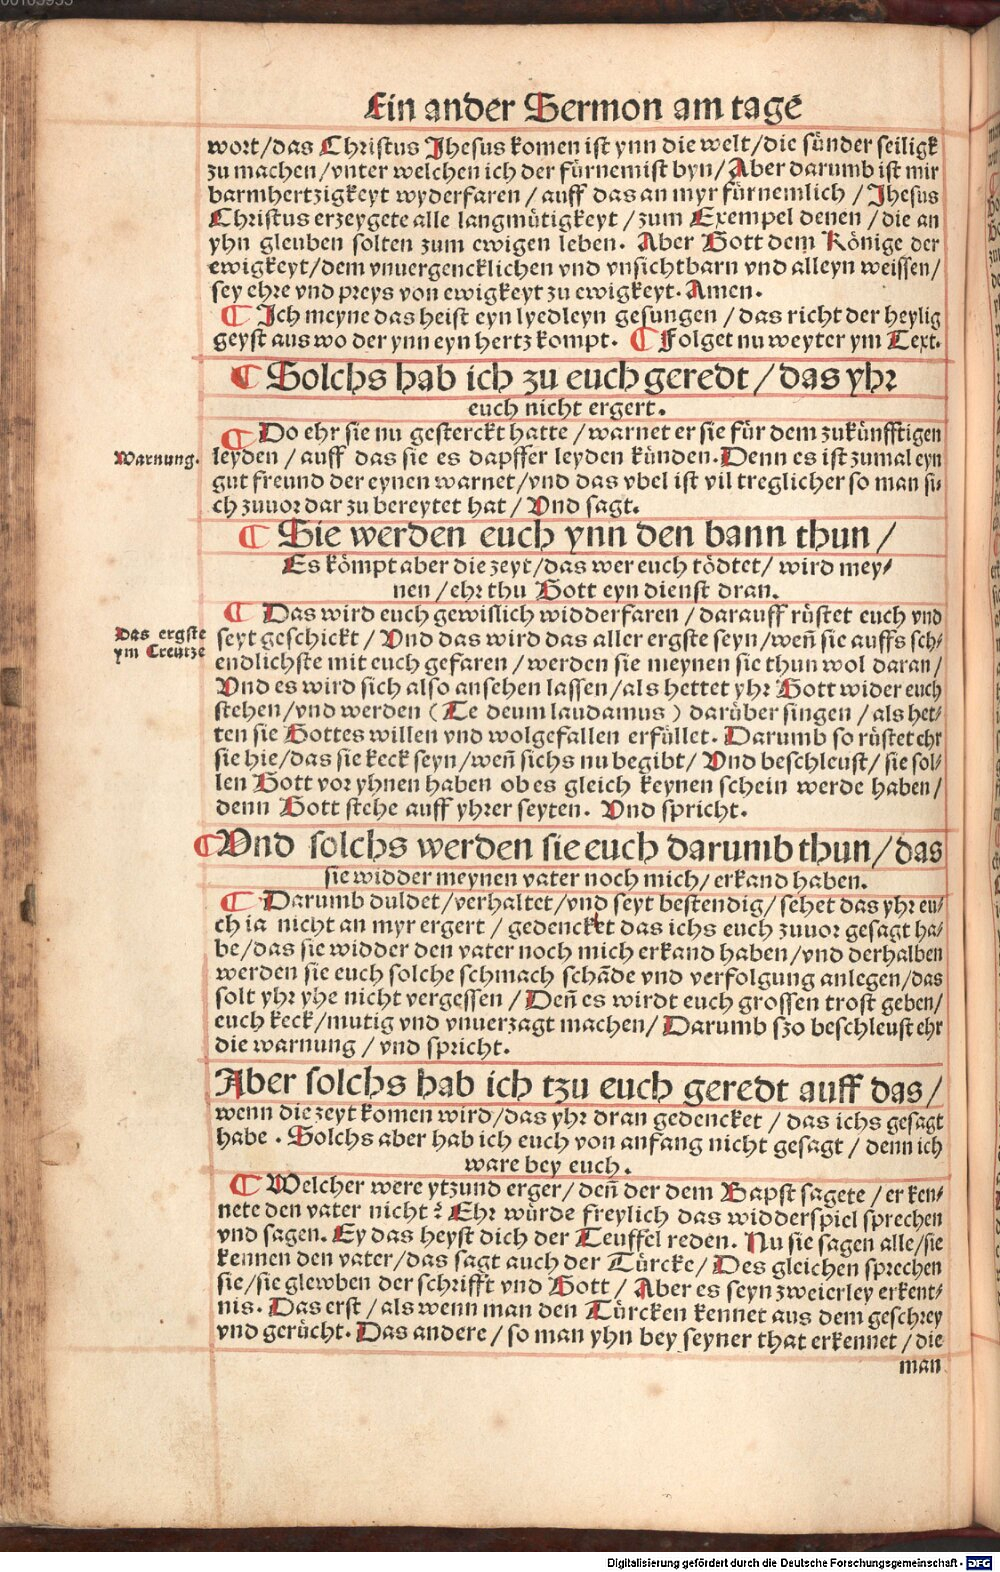 Ein ander Sermon am tage
wort/das Christus Jhesus komen ist ynn die welt/die sünder seiligk
zu machen/vnter welchen ich der fürnemist byn/Aber darumb ist mir
barmhertzigkeyt wyderfaren/auff das an myr fürnemlich/Jhesus
Christus erzeygete alle langmütigkeyt/zum Exempel denen/die an
yhn gleuben solten zum ewigen leben. Aber Gott dem Könige der
ewigkeyt/dem vnuergencklichen vnd vnsichtbarn vnd alleyn weissen/
sey ehre vnd preys von ewigkeyt zu ewigkeyt. Amen.
¶ Jch meyne das heist eyn lyedleyn gesungen/das richt der heylig
geyst aus wo der ynn eyn hertz kompt. ¶ Folget nu weyter ym Text.
¶ Solchs hab ich zu euch geredt/das yhr
euch nicht ergert.
¶ Do ehr sie nu gesterckt hatte/warnet er sie für dem zukünfftigen
Warnung.
leyden/auff das sie es dapffer leyden künden. Denn es ist zumal eyn
gut freund der eynen warnet/vnd das vbel ist vil treglicher so man si-
ch zuuor dar zu bereytet hat/Vnd sagt.
¶ Sie werden euch ynn den bann thun/
Es kömpt aber die zeyt/das wer euch tödtet/wird mey-
nen/ehr thu Gott eyn dienst dran.
¶ Das wird euch gewislich widderfaren/darauff rüstet euch vnd
Das ergste
ym Creutze
seyt geschickt/Vnd das wird das aller ergste seyn/weñ sie auffs sch-
endlichste mit euch gefaren/werden sie meynen sie thun wol daran/
Vnd es wird sich also ansehen lassen/als hettet yhr Gott wider euch
stehen/vnd werden (Te deum laudamus) darüber singen/als het-
ten sie Gottes willen vnd wolgefallen erfüllet. Darumb so rüstet ehr
sie hie/das sie keck seyn/weñ sichs nu begibt/Vnd beschleust/sie sol-
len Gott vor yhnen haben ob es gleich keynen schein werde haben/
denn Gott stehe auff yhrer seyten. Vnd spricht.
¶ Vnd solchs werden sie euch darumb thun/das
sie widder meynen vater noch mich/erkand haben.
¶ Darumb duldet/verhaltet/vnd seyt bestendig/sehet das yhr eu-
ch ia nicht an myr ergert/gedencket das ichs euch zuuor gesagt ha-
be/das sie widder den vater noch mich erkand haben/vnd derhalben
werden sie euch solche schmach schãde vnd verfolgung anlegen/das
solt yhr yhe nicht vergessen/Deñ es wirdt euch grossen trost geben/
euch keck/mutig vnd vnuerzagt machen/Darumb szo beschleust ehr
die warnung/vnd spricht.
Aber solchs hab ich tzu euch geredt auff das/
wenn die zeyt komen wird/das yhr dran gedencket/das ichs gesagt
habe. Solchs aber hab ich euch von anfang nicht gesagt/denn ich
ware bey euch.
¶ Welcher were ytzund erger/deñ der dem Bapst sagete/er ken-
nete den vater nicht? Ehr würde freylich das widderspiel sprechen
vnd sagen. Ey das heyst dich der Teuffel reden. Nu sie sagen alle/sie
kennen den vater/das sagt auch der Türcke/Des gleichen sprechen
sie/sie glewben der schrifft vnd Gott/Aber es seyn zweierley erkent-
nis. Das erst/als wenn man den Türcken kennet aus dem geschrey
vnd gerücht. Das andere/so man yhn bey seyner that erkennet/die
man
Digitalisierung gefördert durch die Deutsche Forschungsgemeinschaft - DFG